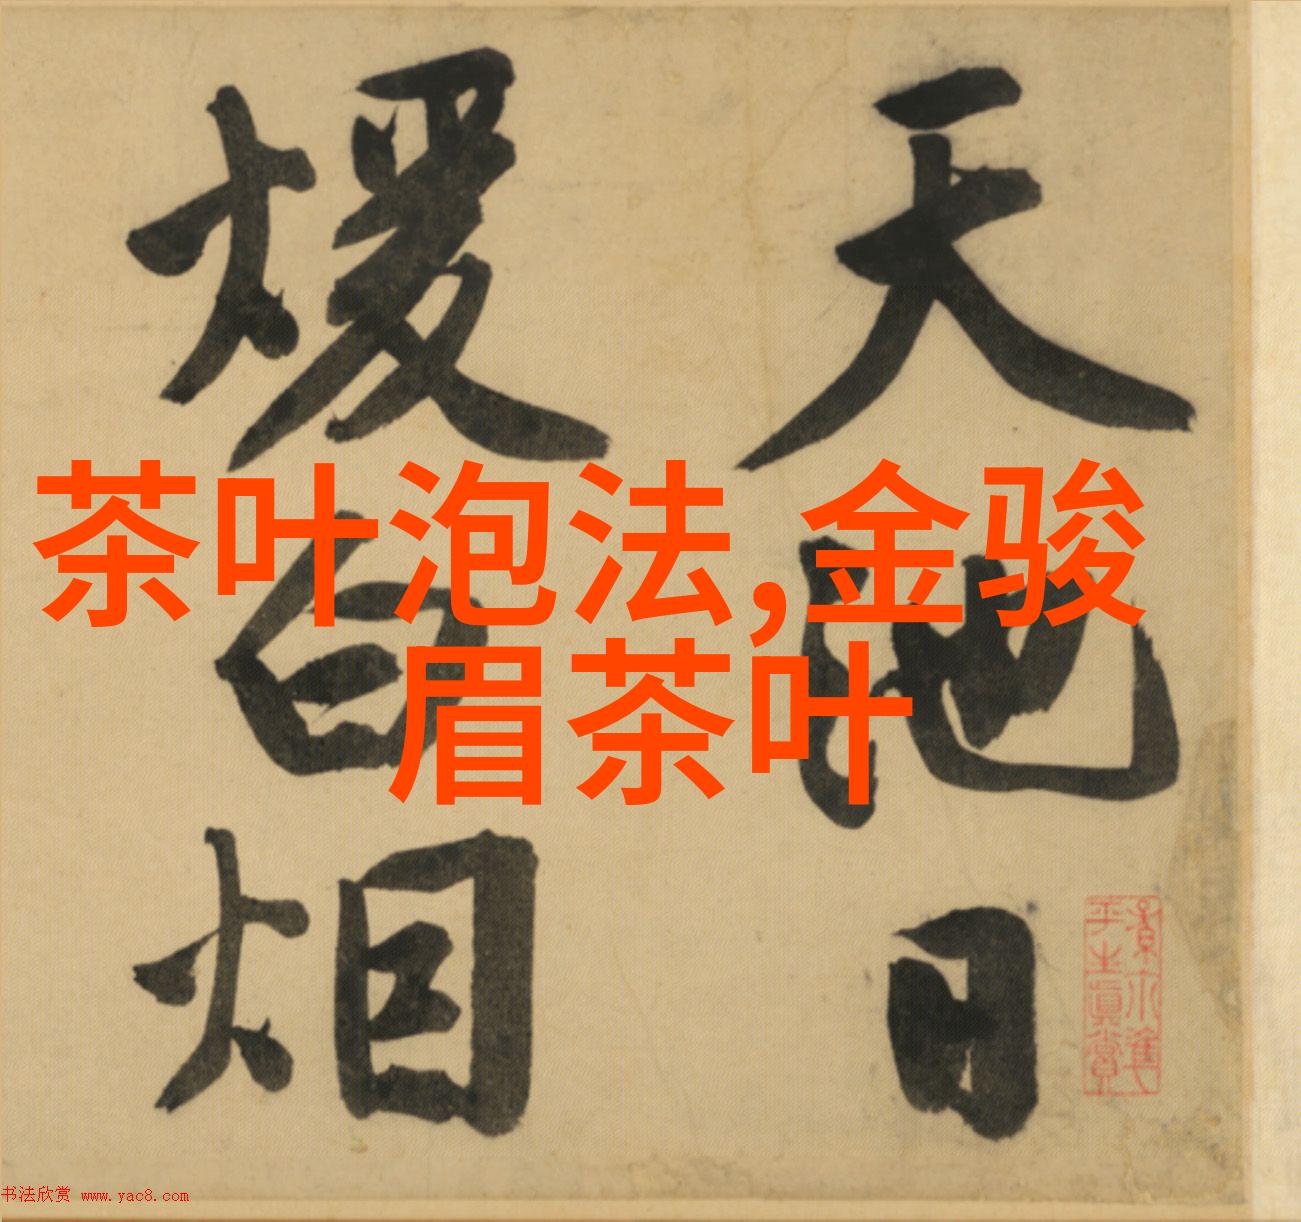 茶叶泡法,金骏
眉茶叶
天池日
煖白相
书法欣赏 www.yac8.com